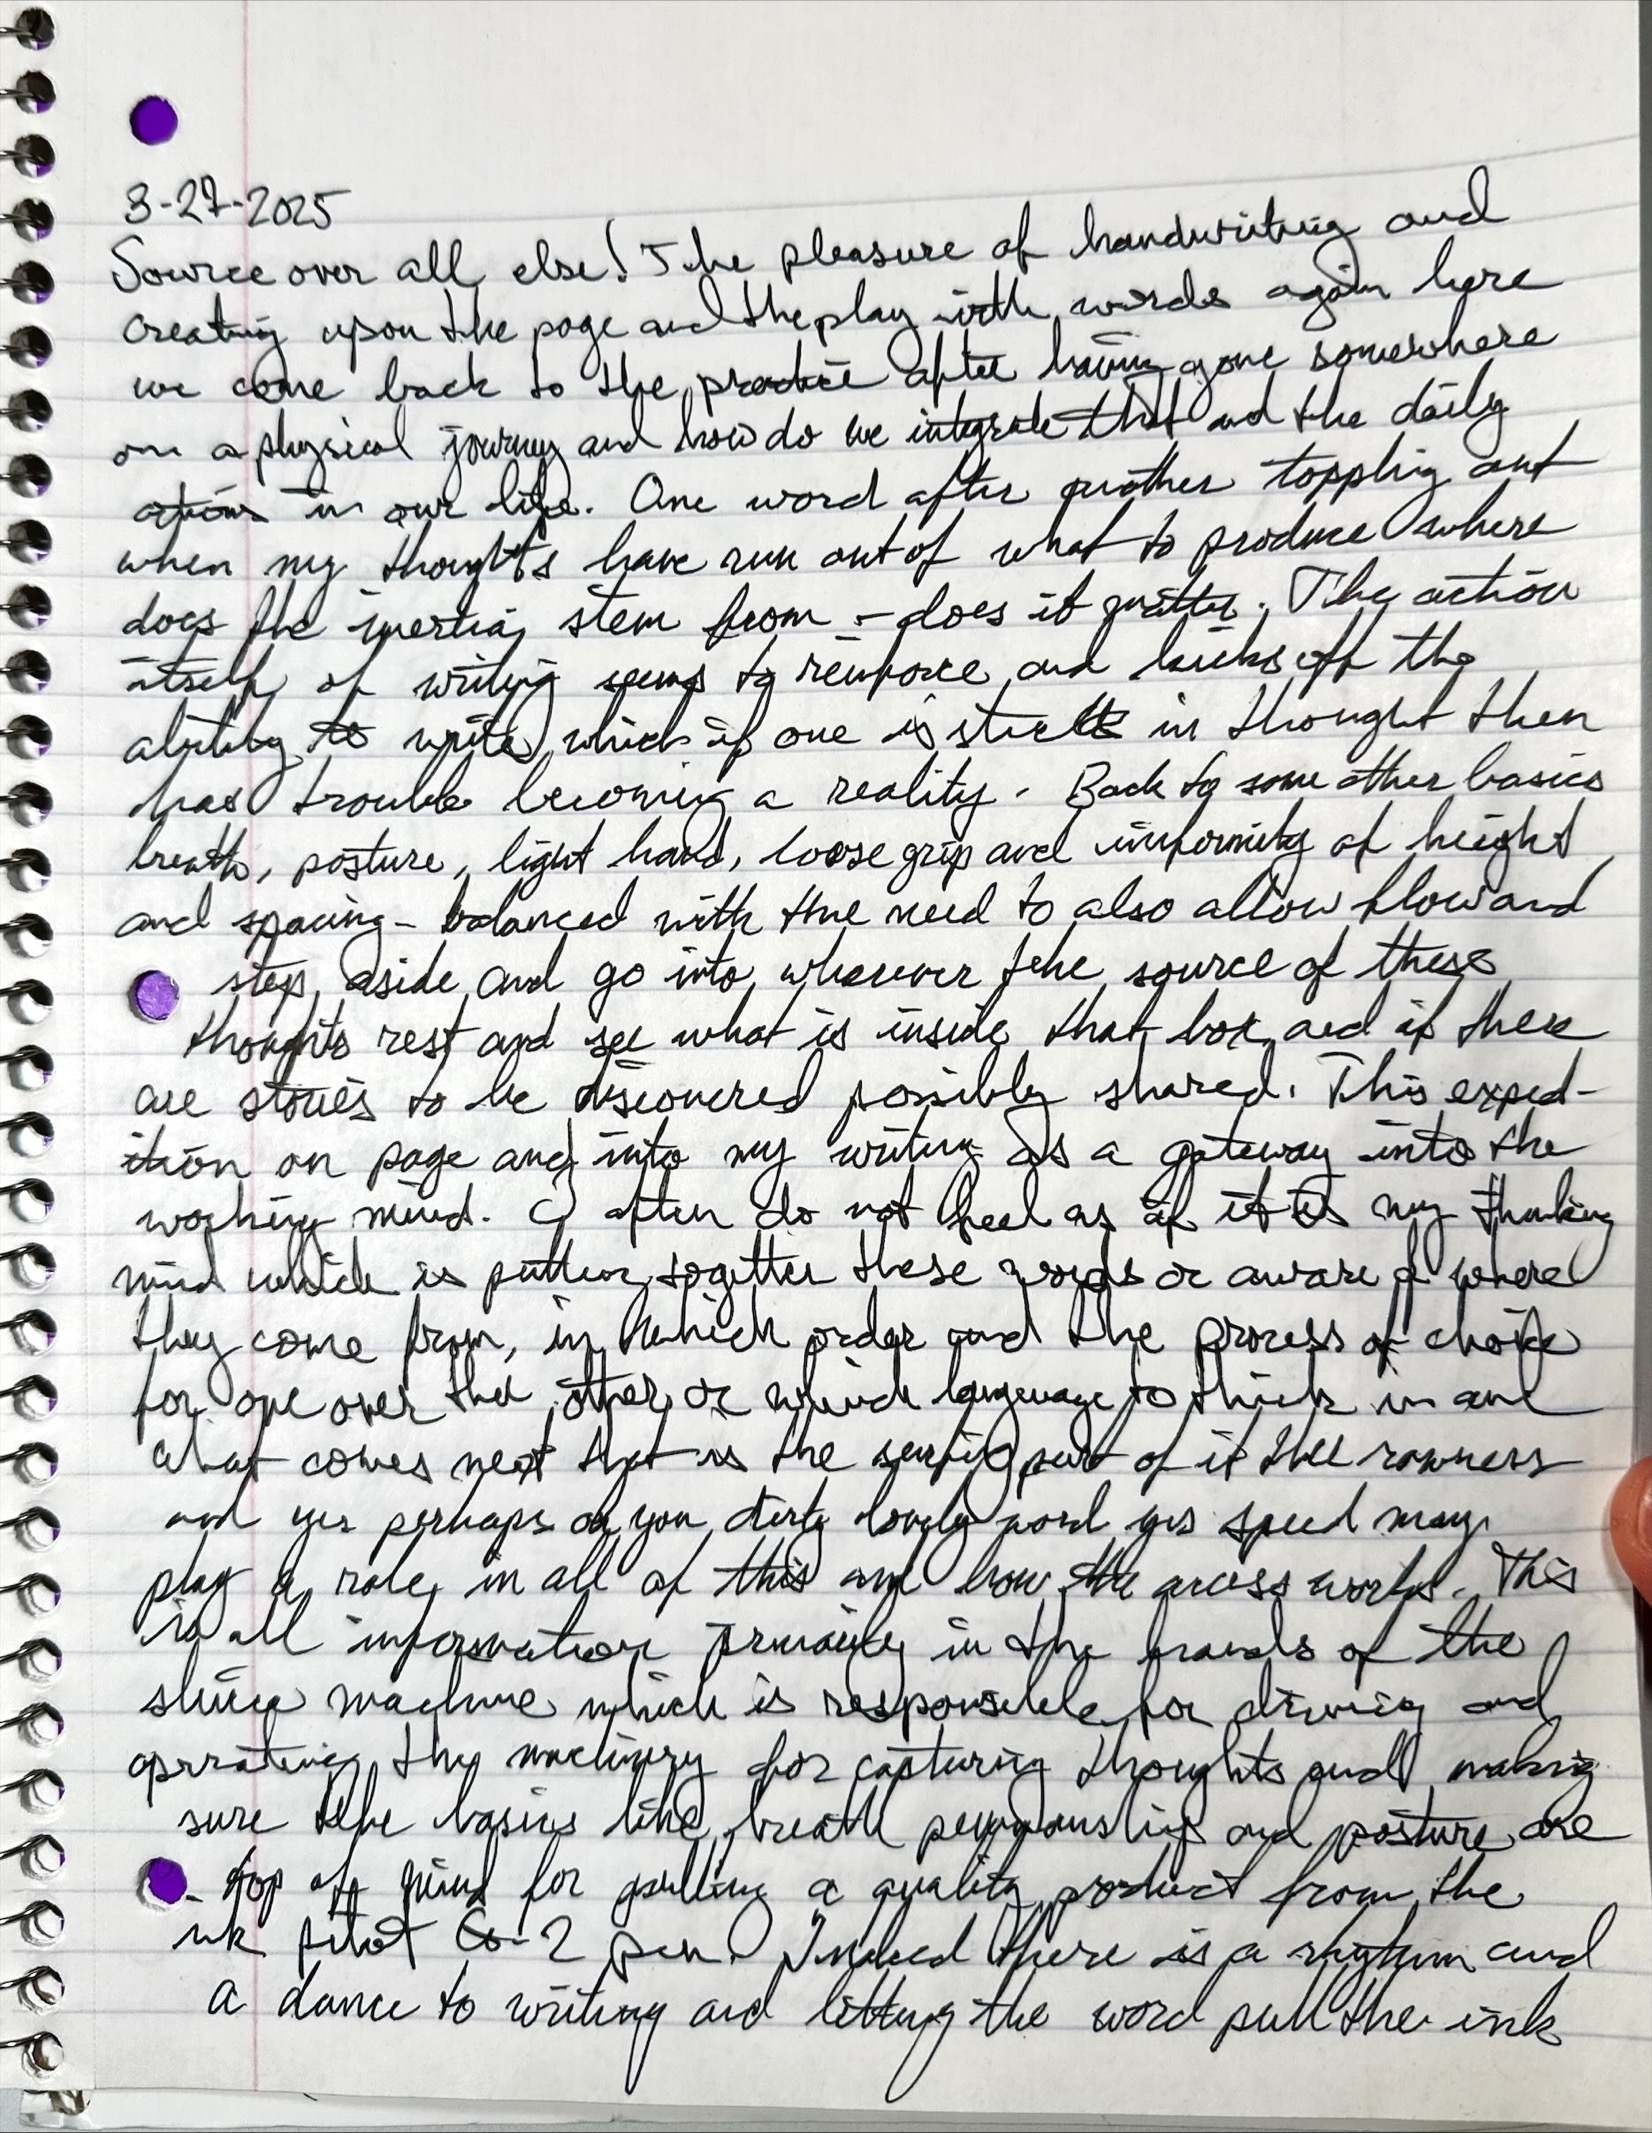 3-27-2025
Source over all else! The pleasure of handwriting and
creating upon the page and the play with words again here
we come back to the practice after having gone somewhere
on a physical journey and how do we integrate that and the daily
actions in our life. One word after another toppling out
when my thoughts have run out of what to produce where
does the inertia stem from - does it matter. The action
itself of writing seems to reinforce and kicks off the
ability to write which if one is stuck in thought then
has trouble becoming a reality. Back to some other basics
breath, posture, light hand, loose grip and uniformity of height
and spacing - balanced with the need to also allow flow and
step aside and go into wherever the source of these
thoughts rest and see what is inside that box and if there
are stories to be discovered possibly shared. This exped-
ition on page and into my writing is a gateway into the
working mind. I often do not feel as if it is my thinking
mind which is putting together these words or aware of where
they come from, in which order and the process of choice
for one over the other or which language to think in and
what comes next that is the part of it the rawness
and yes perhaps oh you dirty lovely word yes speed may
play a role in all of this and how the access works. This
is all information primarily in the hands of the
machine which is responsible for driving and
operating the machinery for capturing thoughts and making
sure the basics like breath penmanship and posture are
top of mind for pulling a quality product from the
ink pilot G-2 pen. Indeed there is a rhythm and
a dance to writing and letting the word pull the ink